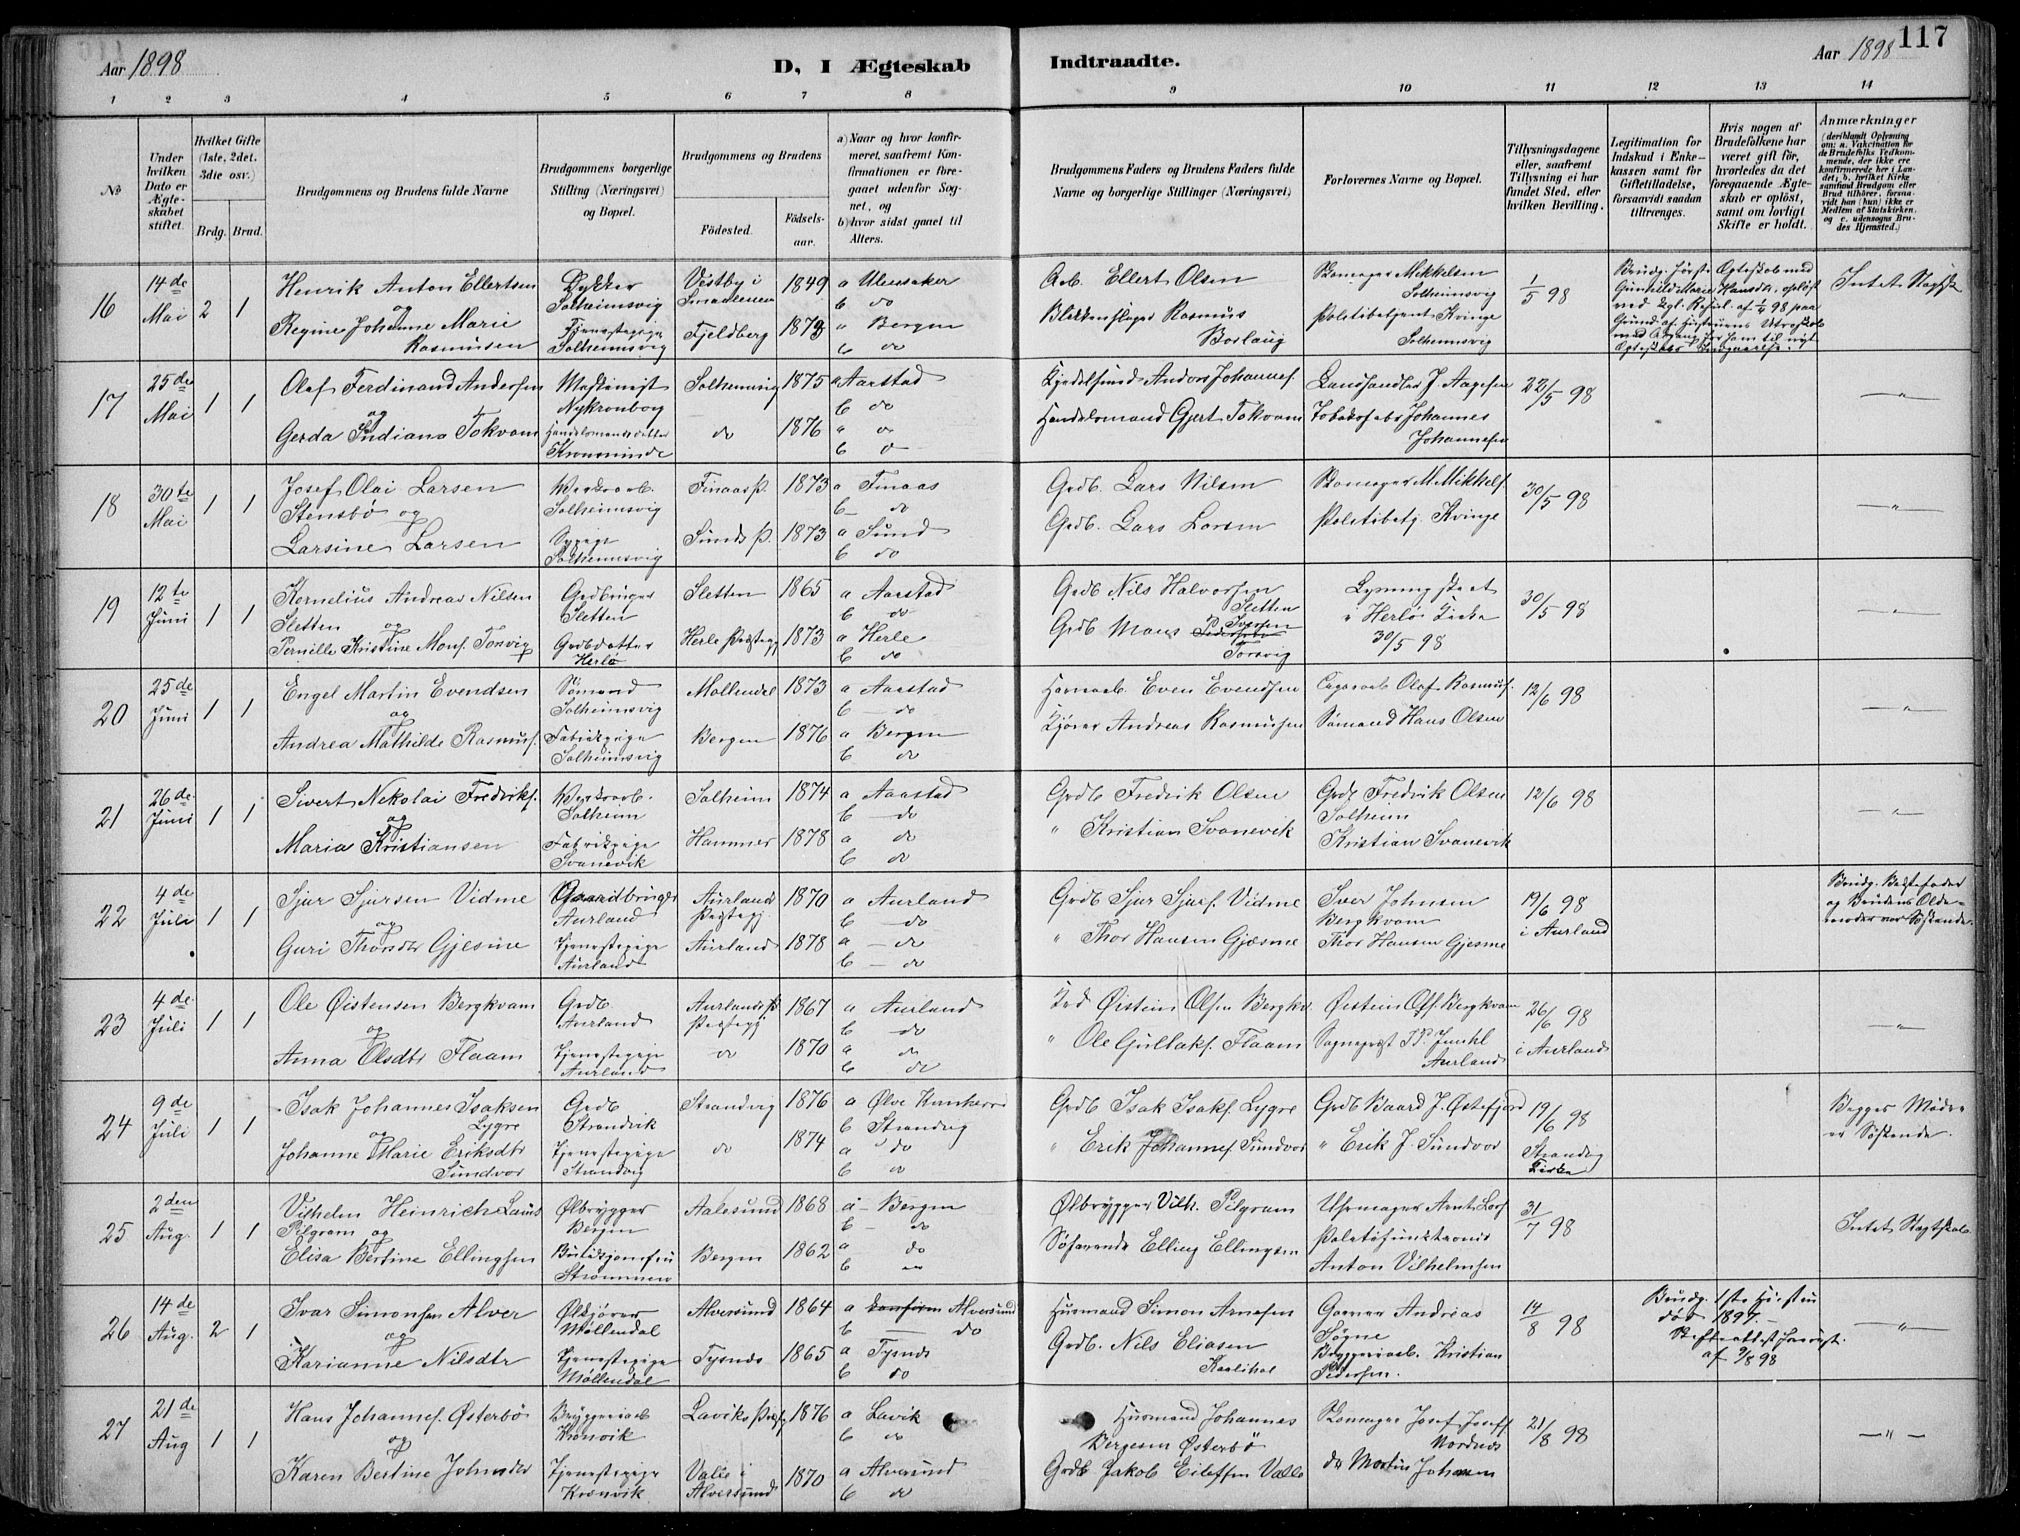 117
Aar 1898
D, I Ægteskab Indtraadte.
Aar 1898
1 2 3 4 5 6 7 8 9 10 11 12 13 14
No
Under hvilken Dato er Ægteskabet stiftet.
Hvilket Gifte (1ste, 2det. 3die osv.)
Brdg. Brud.
Brudgommens og Brudens fulde Navne
Brudgommens borgerlige Stilling (Næringsvei) og Bopæl.
Brudgommens og Brudens
Födested.
Födselsaar.
a) Naar og hvor konfirmeret, saafremt Konfirmationen er foregaaet udenför Sognet, og
b) hvor sidst gaaet til Alters.
Brudgommens Faders og Brudens Faders fulde Navne og borgerlige Stillinger (Næringsvei.)
Forlovernes Navne og Bopæl.
Tillysningsdagene eller, saafremt Tillysning ei har fundet Sted, efter hvilken Bevilling.
Legitimation for Indskud i Enkekassen samt for Giftetilladelse, forsaavidt saadan tiltrænges.
Hvis nogen af Brudefolkene har været gift för, hvorledes da det foregaaende Ægteskab er oplöst, samt om lovligt Skifte er holdt.
Anmærkninger
(deriblandt Oplysning om: a. Vakcination for de Brudefolks Vedkommende, der ikke ere konfirmerede her i Landet; b. hvilket Kirkesamfund Brudgom eller Brud tilhörer, forsaavidt han (hun) ikke er Medlem af Statskirken, og c. udensogns Brudes Hjemsted.)
16 14de Mai 2 1
Henrik Anton Ellertsen
og
Regine Johanne Marie
Rasmussen
Dykker
Solheimsvig
Tjenestepige
Solheimsvig
Vestby i
Smaalenene 1849
Fjeldberg 1873
a Ulensaker
b do
a Bergen
b do
Arb. Ellert Olsen
Blikkenslager Rasmus
Borlaug
Skomager Mikkelsen
Solheimsvig
Politibetjent Kvinge
Solheimsvig
1/5 98
Brudg. første Ægteskab med
Intet Slægtsk
17 25de Mai 1 1
Olaf Ferdinand Andersen
og
Gerda Indiana Tokvam
Nykronborg
Handelsmandsdatter
Kronsminde
Solheimsvig 1875
do 1876
a Aarstad
b do
a do
b do
Kjedelsmed Anders Johannes.
Handelsmand Gjert Tokvam
Landhandler J. Aagesen
Johannes
Johannesen
22/5 98
— „ —
18 30te Mai 1 1
Josef Olai Larsen
Stensbø og
Larsine Larsen
Verksarb.
Solheimsvig
Sypige
Solheimsvig
Finaas P. 1873
Sunds P. 1873
a Finaas
b — do
a Sund
b do
Grdb. Lars Nilsen
Grdb. Lars Larsen
Skomager M. Mikkels.
Politibetj. Kvinge
30/5 98
— „ —
19 12te Juni 1 1
Kornelius Andreas Nilsen
Sletten og
Pernille Kristine Mons. Tonvig
Grdbruger
Sletten
Grdbdatter
Herlø
Sletten 1865
Herlø Præstegj 1873
a Aarstad
b do
a Herlø
b do
Grdb Nils Halvorsen
Sletten
Grdb Mons P. Iversen
Lysning
i Herlø Kirke
30/5 98
30/5 98
— „ —
20 25de Juni 1 1
Engel Martin Evendsen
og
Andrea Mathilde Rasmus.
Sømand
Solheimsvig
Fabrikpige
Solheimsvig
Møllendal 1873
Bergen 1876
a Aarstad
b — do
a Bergen
b do
Havnearb. Even Evendsen
Kjører Andreas Rasmussen
Olaf Rasmus.
Sømand Hans Olsen
12/6 98
— „ —
21 26de Juni 1 1
Sivert Nikolai Fredriks.
og
Maria Kristiansen
Verksarb.
Solheim
Fabrikpige
Svanevik
Solheim 1874
Hammer 1878
a Aarstad
b — do
a do
b do
Grdb Fredrik Olsen
„ Kristian Svanevik
Grdb Fredrik Olsen
Solheim
Kristian Svanevik
12/6 98
— „ —
22 4de Juli 1 1
Sjur Sjursen Vidme
og
Guri Thorsdtr Gjesme
Gaardbruger
Aurland
Tjenestepige
Aurland
Aurland
Præstegj. 1870
Aurland 1878
a Aurland
b — do
a — do
b — do
Grdb Sjur Sjurs. Vidme
„ Thor Hansen Gjæsme
Iver Johnsen
Bergkvam
Thor Hansen Gjesme
19/6 98
i Aurland
Brudg. Bestefader
og Brudens Oldemoder var Søskende.
23 4de Juli 1 1
Ole Øistensen Bergkvam
og
Anna Olsdtr Flaam
Grdb
Aurland
Tjenestepige
Aurland
Aurlands
Præstegj 1867
do 1870
a Aurland
b do
a do
b do
Øistein Olsen Bergkv.
„ Ole Gullaks. Flaam
Øistein Ols. Bergkvam
Sognepræst
Aurland
26/6 98
i Aurland
— „ —
24 9de Juli 1 1
Isak Johannes Isaksen
Lygre
og
Johanne Marie Eriksdtr
Sundvor
Grdb
Strandvik
Tjenestepige
Strandvig
Strandvig 1876
do 1874
a Ølve
b Strandvig
a do
b do
Grdb Isak Isaks. Lygre
„ Erik Johannes. Sundvor
Grdb Baard J. Østefjord
„ Erik J. Sundvor
19/6 98
Strandvig
Kirke
Begges Mødre
er Søskende.
25 2den Aug. 1 1
Vilhelm Heinrich Laus
Pilgram og
Elisa Bertine Ellingsen
Ølbrygger
Bergen
Butikjomfru
Strømmen
Aalesund 1868
Bergen 1862
a - Bergen
b - do
a do
b do
Ølbrygger Vilh. Pilgram
Søfarende Elling Ellingsen
Uhrmager Arnt
Anton Vilhelmsen
31/7 98
Intet Slægtskab.
26 14de Aug. 2 1
Ivar Simonsen Alver
og
Karianne Nilsdtr
Ølkjører
Møllendal
Tjenestepige
Møllendal
Alversund 1864
Tysnes 1865
a Alversund
b — do
a Tysnes
b do
Husmand Simon Arnesen
Grdb. Nils Eliasen
Garver Andreas
Søgne
Bryggeriarb. Kristian
Pedersen.
14/8 98
Brudg. 1ste Hustru
død 1897. —
Skifteattest forevist.
af 9/8 98
— „ —
27 21de Aug 1 1
Hans Johannes. Østerbø
og
Karen Bertine Johnsdtr
Bryggeriarb
Kronvik
Tjenestepige
Kronvik
Laviks 1876
Valle i
Alversund 1870
a Lavik
b do
a Alversund
b do
Husmand Johannes
Bergesen Østerbø
Grdb Jakob Eilefsen Valle
Skomager Josef
Nordnes
do Martin Johansen
21/8 98
— „ —